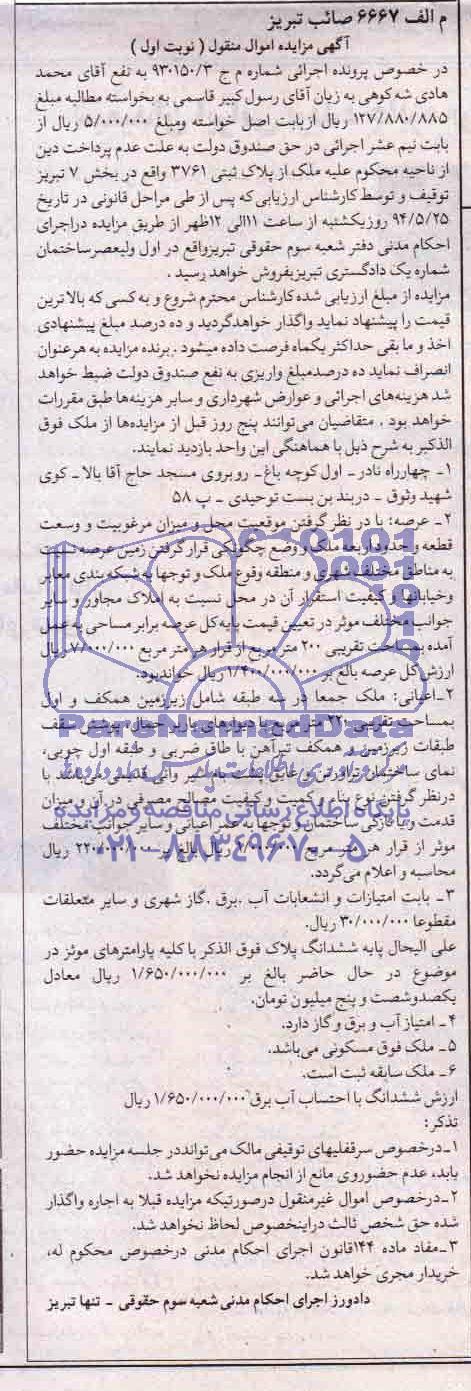 م الف ۶۶۶۷ صائب تبریز
آگهی مزایده اموال منقول ( نوبت اول )
در خصوص پرونده اجرائی شماره م ج ۹۳۰۱۵۰/۳ به نفع آقای محمد
هادی شه کوهی به زیان آقای رسول کبیر قاسمی به بخواسته مطالبه مبلغ
۱۲۷/۸۸۰/۸۸۵ ریال ازبابت اصل خواسته ومبلغ ۵/۰۰۰/۰۰۰ ریال از
بابت نیم عشر اجرائی در حق صندوق دولت به علت عدم پرداخت دین
از ناحیه محکوم علیه ملک از پلاک ثبتی ۳۷۶۱ واقع در بخش ۷ تبریز
توقیف و توسط کارشناس ارزیابی که پس از طی مراحل قانونی در تاریخ
۹۴/۵/۲۵ روزیکشنبه از ساعت ۱۱الی ۱۲ظهر از طریق مزایده دراجرای
احکام مدنی دفتر شعبه سوم حقوقی تبریزواقع در اول ولیعصرساختمان
شماره یک دادگستری تبریزبفروش خواهد رسید .
مزایده از مبلغ ارزیابی شده کارشناس محترم شروع و به کسی که بالاترین
قیمت را پیشنهاد نماید واگذار خواهدگردید و ده درصد مبلغ پیشنهادی
اخذ و ما بقی حداکثر یکماه فرصت داده میشود . برنده مزایده به هرعنوان
انصراف نماید ده درصدمبلغ واریزی به نفع صندوق دولت ضبط خواهد
شد هزینه‌های اجرائی و عوارض شهرداری و سایر هزینه‌ها طبق مقررات
خواهد بود . متقاضیان می‌توانند پنج روز قبل از مزایده‌ها از ملک فوق
الذکر به شرح ذیل با هماهنگی این واحد بازدید نمایند.
۱- چهارراه نادر - اول کوچه باغ- روبروی مسجد حاج آقا بالا - کوی
شهید وثوق - دربند بن بست توحیدی - پ ۵۸
۲- عرصه: با در نظر گرفتن موقعیت محل و میزان مرغوبیت و وسعت
قطعه و حدود اربعه ملک و وضع چگونگی قرار گرفتن زمین عرصه نسبت
به مناطق مختلف شهری و منطقه وقوع ملک و توجها به شبکه بندی معابر
وخیابانها و کیفیت استقرار آن در محل نسبت به املاک مجاور و سایر
جوانب مختلف موثر در تعیین قیمت پایه کل عرصه برابر مساحی به عمل
آمده بمساحت تقریبی ۲۰۰ متر مربع از قرار هر متر مربع ۷/۰۰۰/۰۰۰ ریال
ارزش کل عرصه بالغ بر ۱/۴۰۰/۰۰۰/۰۰۰ ریال خواهدبود.
۲-اعیانی: ملک جمعا در سه طبقه شامل زیرزمین همکف و اول
بمساحت تقریبی ۲۲۰ متر مربع با دیوارهای باربر حمال، پوشش سقف
طبقات زیرزمین و همکف تیرآهن با طاق ضربی و طبقه اول چوبی،
نمای ساختمان و عایق می‌باشد با
درنظر گرفتن نوع بنا و کمیت و کیفیت مصالح مصرفی در آن و میزان
قدمت و ساختمان و توجها به عمر اعیانی و سایر جوانب مختلف
موثر از قرار هر متر مربع ۱/۰۰۰/۰۰۰ ریال بالغ بر ۲۲۰/۰۰۰/۰۰۰ ریال
محاسبه و اعلام می‌گردد.
۳- بابت امتیازات و انشعابات آب .برق .گاز شهری و سایر متعلقات
مقطوعا ۳۰/۰۰۰/۰۰۰ ریال.
علی الیحال پایه ششدانگ پلاک فوق الذکر با کلیه پارامترهای موثر در
موضوع در حال حاضر بالغ بر ۱/۶۵۰/۰۰۰/۰۰۰ ریال معادل
یکصدوشصت و پنج میلیون تومان.
۴- امتیاز آب و برق و گاز دارد.
۵- ملک فوق مسکونی می‌باشد.
۶- ملک سابقه ثبت است.
ارزش ششدانگ با احتساب آب برق ۱/۶۵۰/۰۰۰/۰۰۰ ریال
تذکر:
۱-درخصوص سرقفلیهای توقیفی مالک می‌توانددر جلسه مزایده حضور
یابد، عدم حضوروی مانع از انجام مزایده نخواهد شد.
۲-درخصوص اموال غیرمنقول درصورتیکه مزایده قبلا به اجاره واگذار
شده حق شخص ثالث دراینخصوص لحاظ نخواهد شد.
۳-مفاد ماده ۱۴۴قانون اجرای احکام مدنی درخصوص محکوم له،
خریدار مجری خواهد شد.
دادورز اجرای احکام مدنی شعبه سوم حقوقی - تنها تبریز
ParsNamadData
پایگاه اطلاع رسانی مناقصه و مزایده
۰۲۱-۸۸۳۴۹۶۷۰-۵